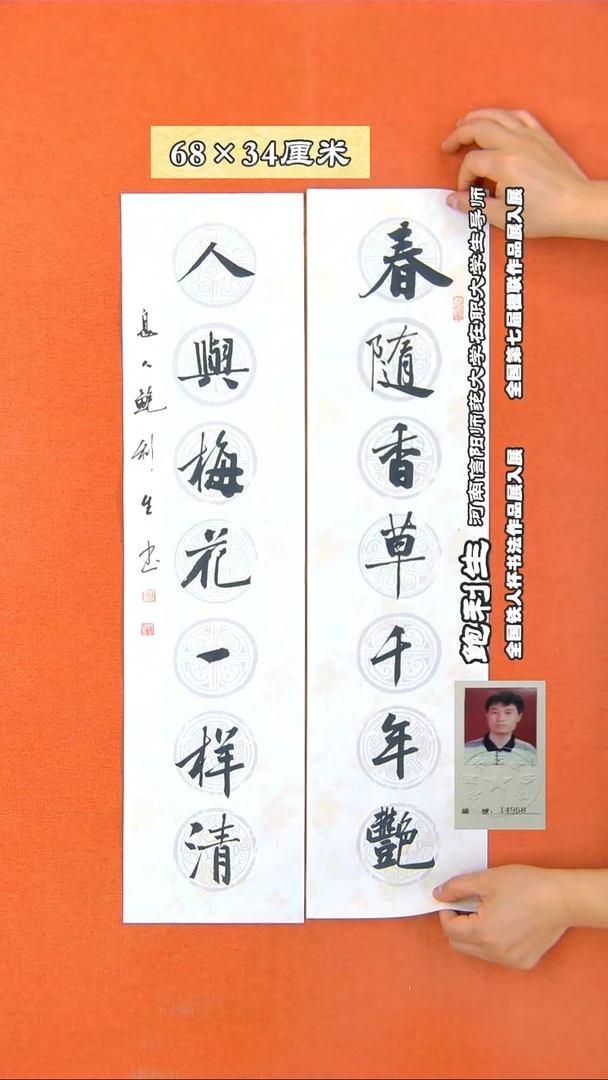 68×34厘米
春随香草千年艷
人與梅花一样清
息人鲍利生书
鲍利生 河南信阳师范大学在职大学生导师
全国铁人杯书法作品展入展 全国第七届楹联作品展入展
编 號：14968